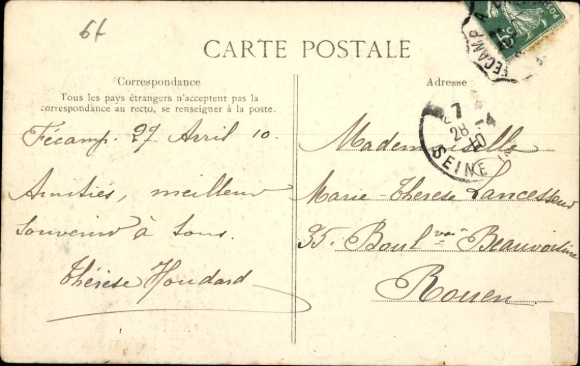 6f
CARTE POSTALE
Correspondance
Tous les pays étrangers n'acceptent pas la
correspondance au recto, se renseigner à la poste.
Fécamp. 27 Avril 10.
Amitiés, meilleur
souvenir à tous.
Thérèse Houdard
Adresse
Mademoiselle
Marie-Thérèse Lancesseur
35. Boul vard Beauvoisine
Rouen
FECAMP
7
28 -4
10
SEINE IN